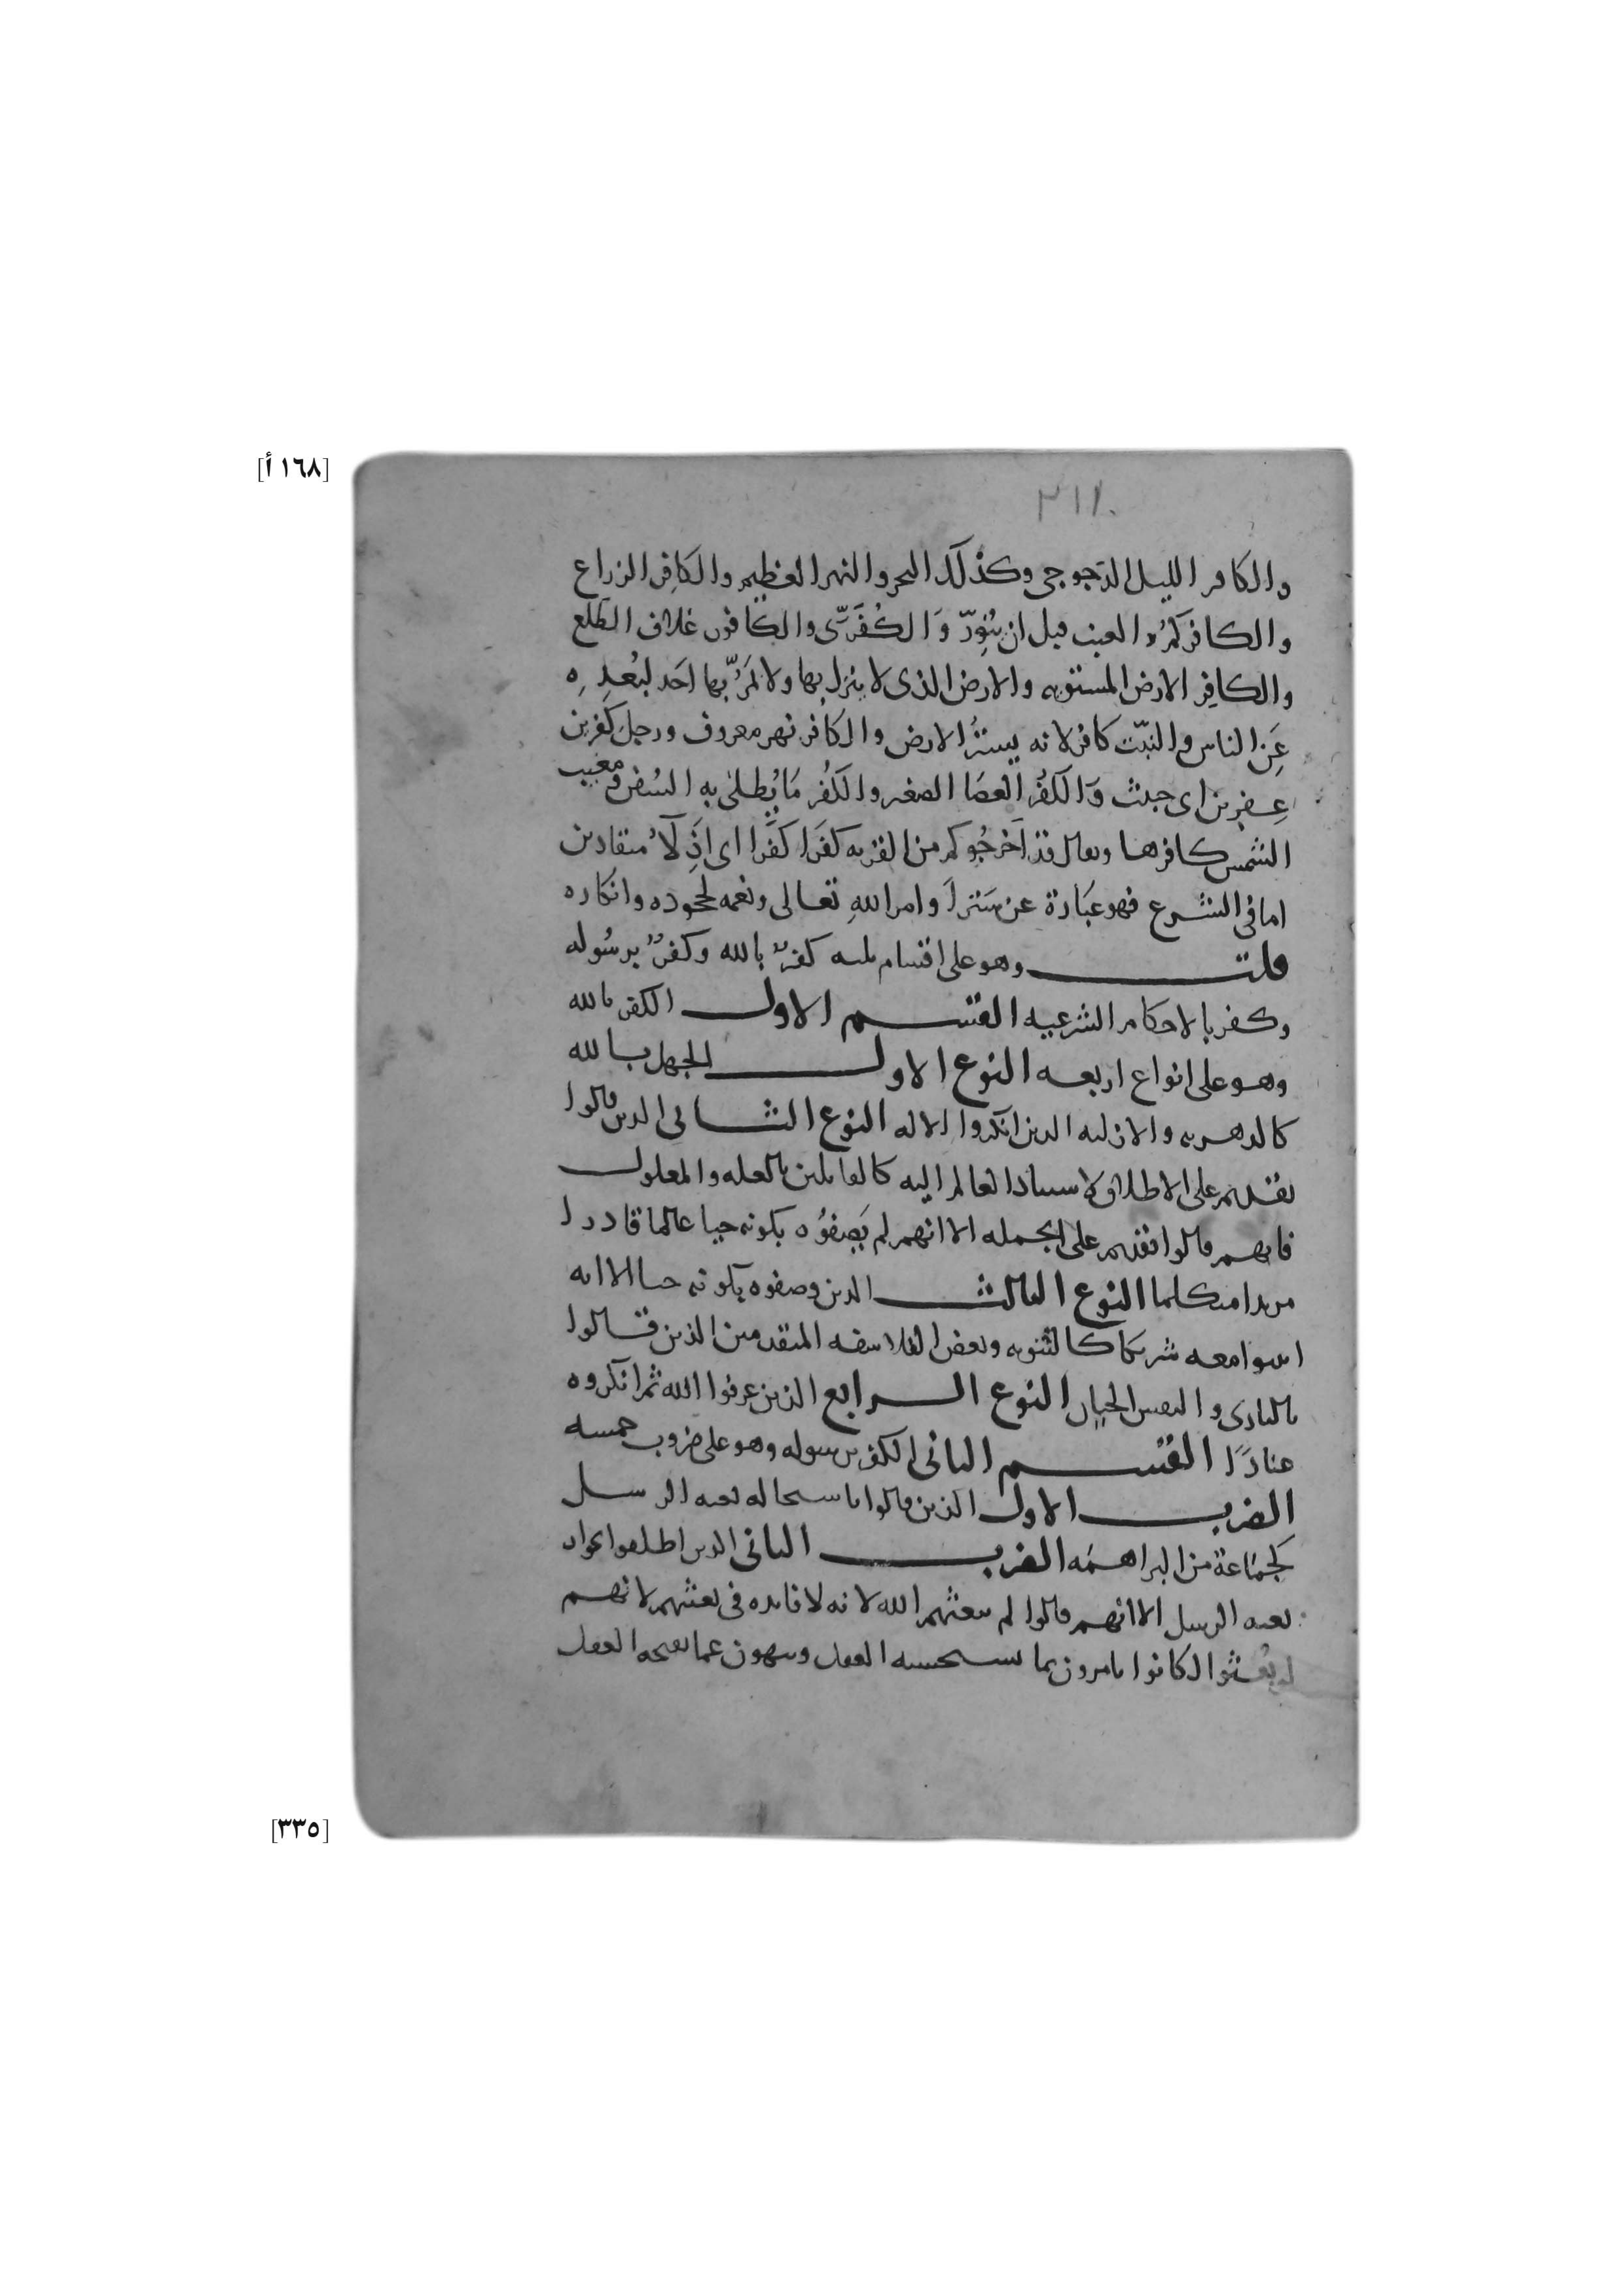 [١٦٨ أ]
٣١٨٠
والكافر الليل الدجوجي وكذلك البحر والنهر العظيم والكافر الزراع
والكافر كمُّ العنب قبل ان يُنوِّر وَالكُفَرَّى والكافور غلاف الطلع
والكافِر الارض المستويه والارض الذي لا ينزل بها ولا يَمُرّ بها احَد لبُعدِه
عَن الناس والنبت كافر لانه يسترُ الارض والكافر نهر معروف ورجل كفرين
عِفرين اى خبيث وَالكَفْر العصَا الصغير والكَفْر مَا يُطلى به السُفن ومغيب
الشمس كافرها ويقال قد اَخرجُوكم من القريه كَفرًا كَفرًا اى اَذِلَّاء منقادين
اما في الشرع فهو عبَارة عن سَتر اَوامر اللهِ تعالى ونعمه لجحوده وانكاره
قلت وهو على اقسام ثلثه كفرٌ بالله وكفرٌ برسُوله
وكفر بالاحكام الشرعيه القسم الاول الكفر بالله
وهو على انواع اربعه النوع الاول الجهل بالله
كالدهريه والازليه الذين انكروا الاله النوع الثاني الذين قالوا
بقدمه على الاطلاق لاسناد العالم اليه كالقايلين بالعله والمعلول
فانهم قالوا بقدمه على الجمله الا انهم لم يَصِفُوه بكونه حيا عالما قادرا
مريدا متكلما النوع الثالث الذين وصفوه بكونه حيا الا انه
اثبتوا معه شريكا كالثنويه وبعض الفلاسفه المتقدمين الذين قالوا
بالباري والنفس النوع الرابع الذين عرفوا الله ثم انكروه
عنادًا القسم الثاني الكفر برسوله وهو على ضروب خمسه
الضرب الاول الذين قالوا باستحاله بعثه الرسل
كجمَاعة من البراهمَه الضرب الثاني الذين اطلقوا جواز
بعثه الرسل الا انهم قالوا لم يبعثهم الله لانه لا فايده في بعثهم لانهم
لو بُعثوا لكانوا يامرون بما يستحسنه العقل وينهون عما يقبحه العقل
[٣٣٥]